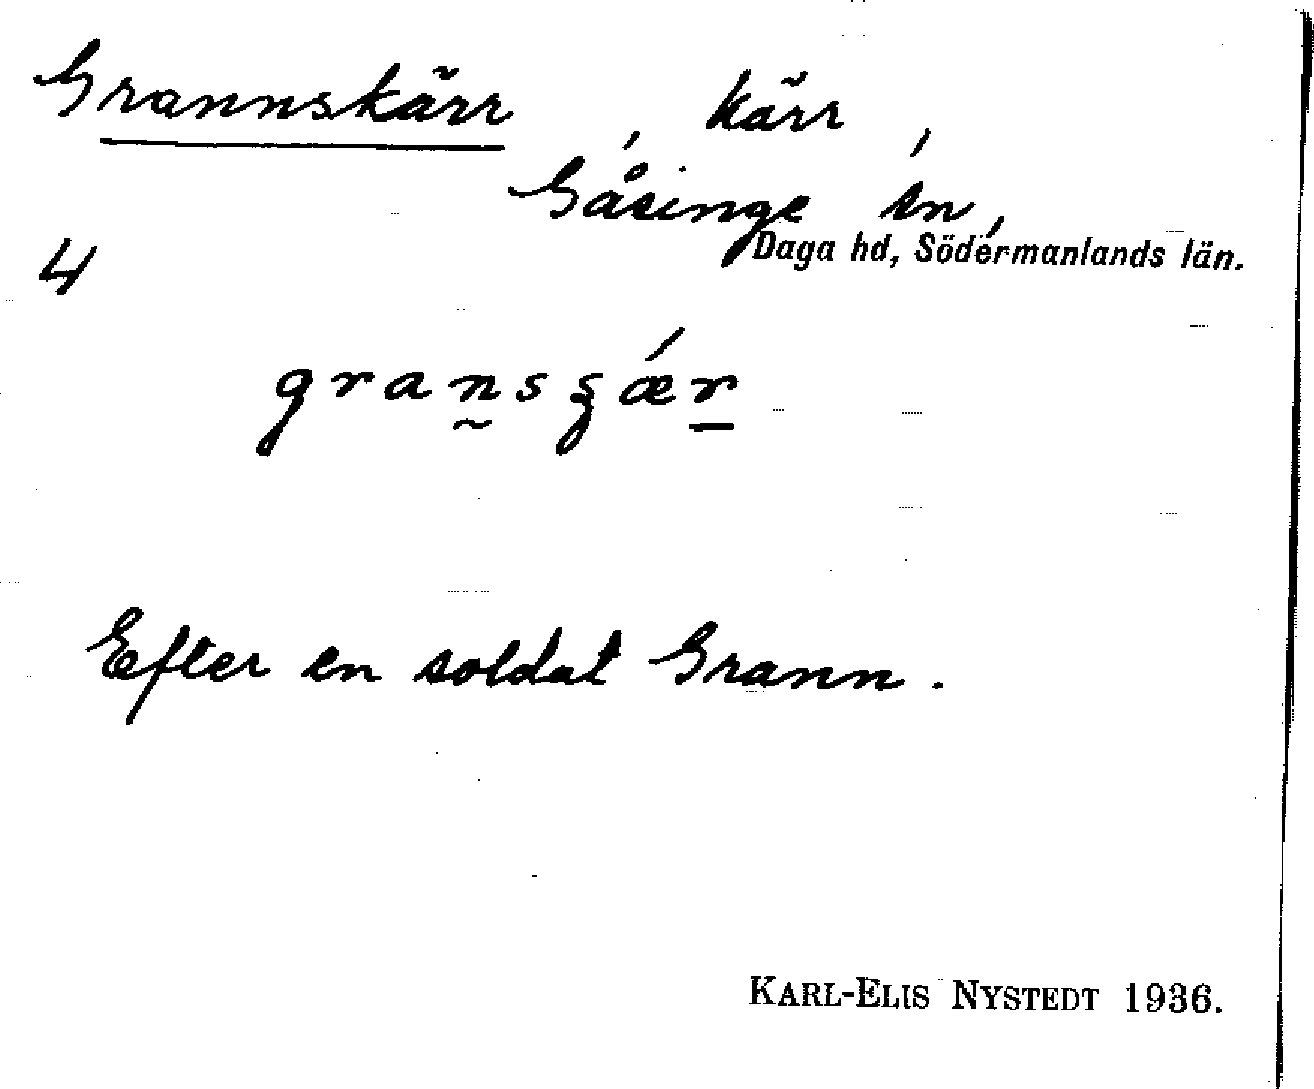 Grannskärr, kärr,
Gåsinge sn,
Daga hd, Södermanlands län.
4
Efter en soldat Grann.
KARL-ELIS NYSTEDT 1936.